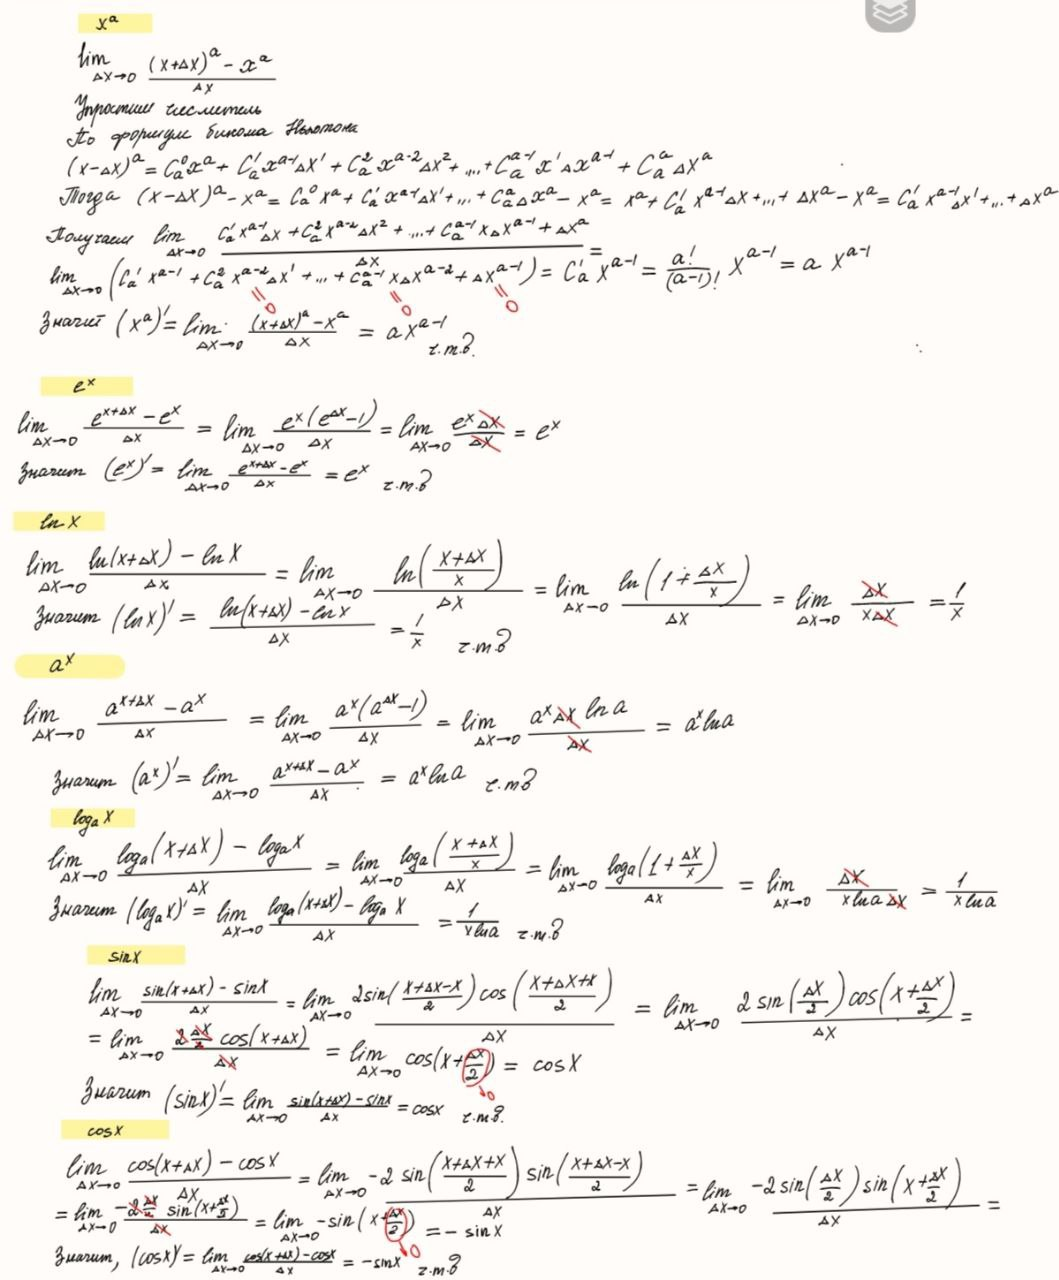 x^a
lim_{Δx→0} ((x+Δx)^a - x^a)/Δx
Упростим числитель
По формуле бинома Ньютона
(x-Δx)^a = C_a^0 x^a + C_a^1 x^{a-1} Δx^1 + C_a^2 x^{a-2} Δx^2 + ... + C_a^{a-1} x^1 Δx^{a-1} + C_a^a Δx^a
Тогда (x-Δx)^a - x^a = C_a^0 x^a + C_a^1 x^{a-1} Δx^1 + ... + C_a^a Δx^a - x^a = x^a + C_a^1 x^{a-1} Δx + ... + Δx^a - x^a = C_a^1 x^{a-1} Δx^1 + ... + Δx^a
Получаем lim_{Δx→0} (C_a^1 x^{a-1} Δx + C_a^2 x^{a-2} Δx^2 + ... + C_a^{a-1} x Δx^{a-1} + Δx^a)/Δx =
lim_{Δx→0} (C_a^1 x^{a-1} + C_a^2 x^{a-2} Δx^1 + ... + C_a^{a-1} x Δx^{a-2} + Δx^{a-1}) = C_a^1 x^{a-1} = a!/(a-1)! x^{a-1} = a x^{a-1}
=0 =0 =0
Значит (x^a)' = lim_{Δx→0} ((x+Δx)^a - x^a)/Δx = a x^{a-1}
ч.т.д.
e^x
lim_{Δx→0} (e^{x+Δx} - e^x)/Δx = lim_{Δx→0} e^x(e^{Δx}-1)/Δx = lim_{Δx→0} e^x Δx/Δx = e^x
Значит (e^x)' = lim_{Δx→0} (e^{x+Δx} - e^x)/Δx = e^x ч.т.д
ln x
lim_{Δx→0} (ln(x+Δx) - ln x)/Δx = lim_{Δx→0} ln((x+Δx)/x)/Δx = lim_{Δx→0} ln(1+Δx/x)/Δx = lim_{Δx→0} Δx/(xΔx) = 1/x
Значит (ln x)' = (ln(x+Δx) - ln x)/Δx = 1/x ч.т.д
a^x
lim_{Δx→0} (a^{x+Δx} - a^x)/Δx = lim_{Δx→0} a^x(a^{Δx}-1)/Δx = lim_{Δx→0} a^x Δx ln a/Δx = a^x ln a
Значит (a^x)' = lim_{Δx→0} (a^{x+Δx} - a^x)/Δx = a^x ln a ч.т.д
log_a x
lim_{Δx→0} (log_a(x+Δx) - log_a x)/Δx = lim_{Δx→0} log_a((x+Δx)/x)/Δx = lim_{Δx→0} log_a(1+Δx/x)/Δx = lim_{Δx→0} Δx/(x ln a Δx) = 1/(x ln a)
Значит (log_a x)' = lim_{Δx→0} (log_a(x+Δx) - log_a x)/Δx = 1/(x ln a) ч.т.д
sin x
lim_{Δx→0} (sin(x+Δx) - sin x)/Δx = lim_{Δx→0} 2 sin((x+Δx-x)/2) cos((x+Δx+x)/2)/Δx = lim_{Δx→0} 2 sin(Δx/2) cos(x+Δx/2)/Δx =
= lim_{Δx→0} 2 Δx/2 cos(x+Δx)/Δx = lim_{Δx→0} cos(x+Δx/2) = cos x
→0
Значит (sin x)' = lim_{Δx→0} (sin(x+Δx) - sin x)/Δx = cos x ч.т.д.
cos x
lim_{Δx→0} (cos(x+Δx) - cos x)/Δx = lim_{Δx→0} -2 sin((x+Δx+x)/2) sin((x+Δx-x)/2)/Δx = lim_{Δx→0} -2 sin(Δx/2) sin(x+Δx/2)/Δx =
= lim_{Δx→0} -2 Δx/2 sin(x+Δx/2)/Δx = lim_{Δx→0} -sin(x+Δx/2) = - sin x
→0
Значит, (cos x)' = lim_{Δx→0} (cos(x+Δx) - cos x)/Δx = -sin x ч.т.д